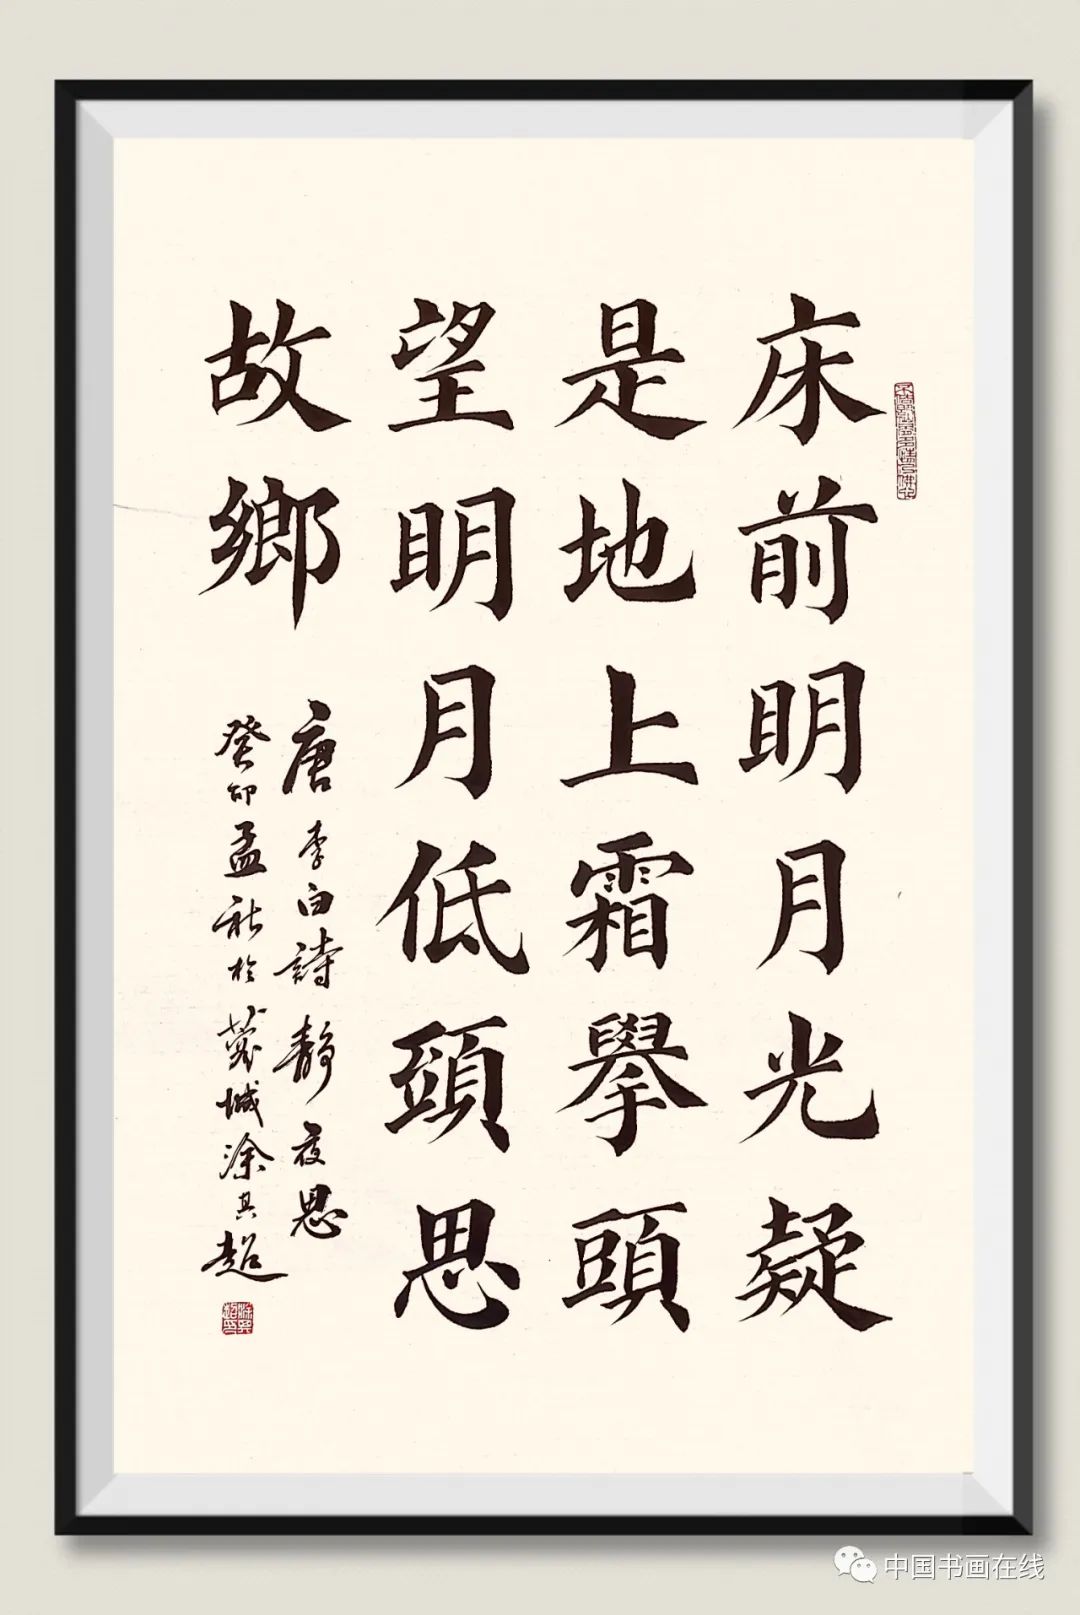 床前明月光疑
是地上霜擧頭
望明月低頭思
故鄉
唐李白詩静夜思
癸卯孟秋於蓉城涂其超
中国书画在线